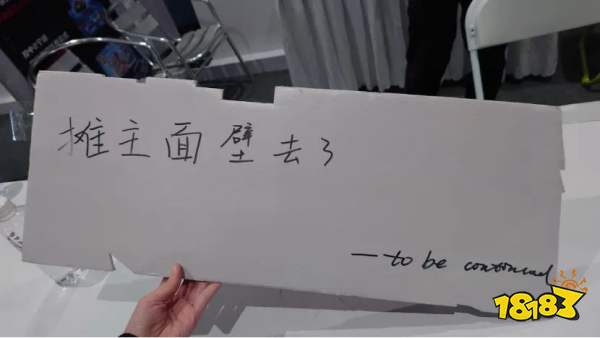 摊主面壁去了
—to be continued
18183